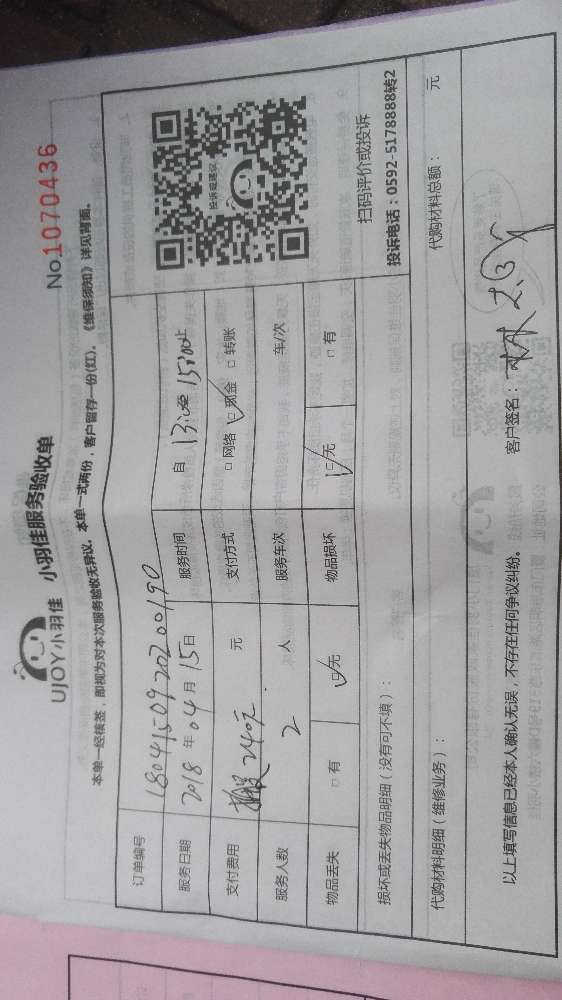 UJOY小羽佳 小羽佳服务验收单 No.1070436
本单一经核签，即视为对本次服务验收无异议。本单一式两份，客户留存一份(红)。《维保须知》详见背面。
订单编号 1804150920200190
服务日期 2018年04月15日 服务时间 自13:00至15:00止
支付费用 240元 元 支付方式 □网络 □现金 □转账
服务人数 2 人 服务车次 车/次
物品丢失 □有 □无 物品损坏 □无 □有
投诉或建议
扫码评价或投诉
投诉电话：0592-5178888转2
损坏或丢失物品明细（没有可不填）：
代购材料明细（维修业务）： 代购材料总额： 元
以上填写信息已经本人确认无误，不存在任何争议纠纷。 客户签名：